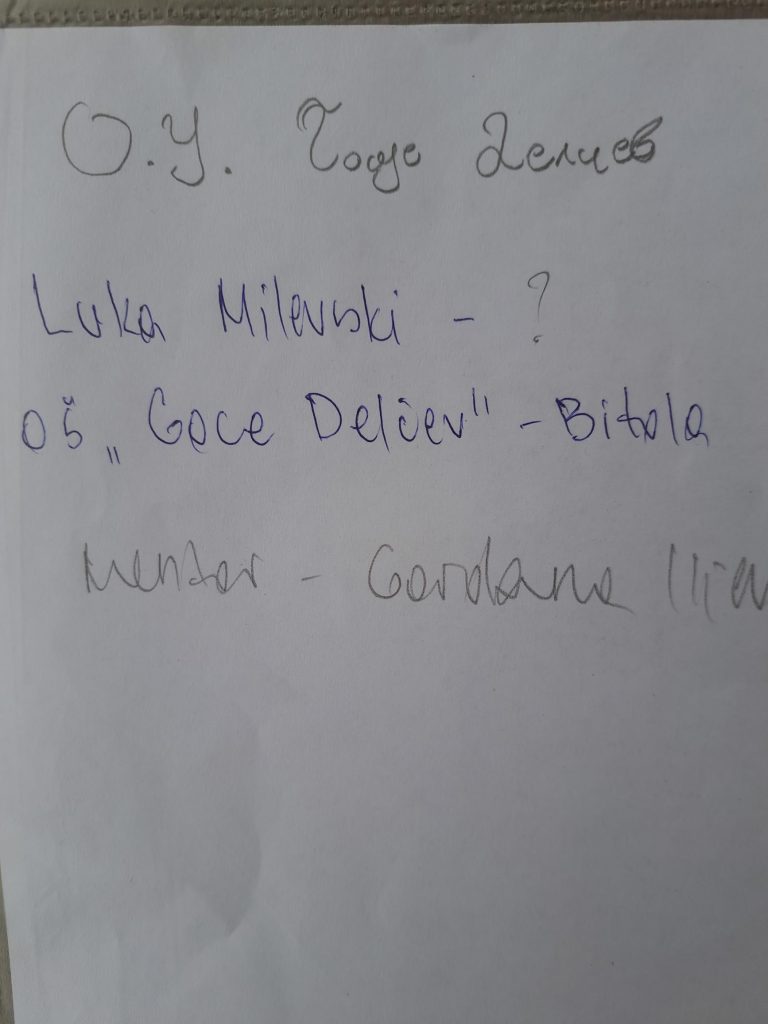 О.У. Гоце Делчев
Luka Milevski - ?
OŠ „Goce Delčev" - Bitola
Mentor - Gordana